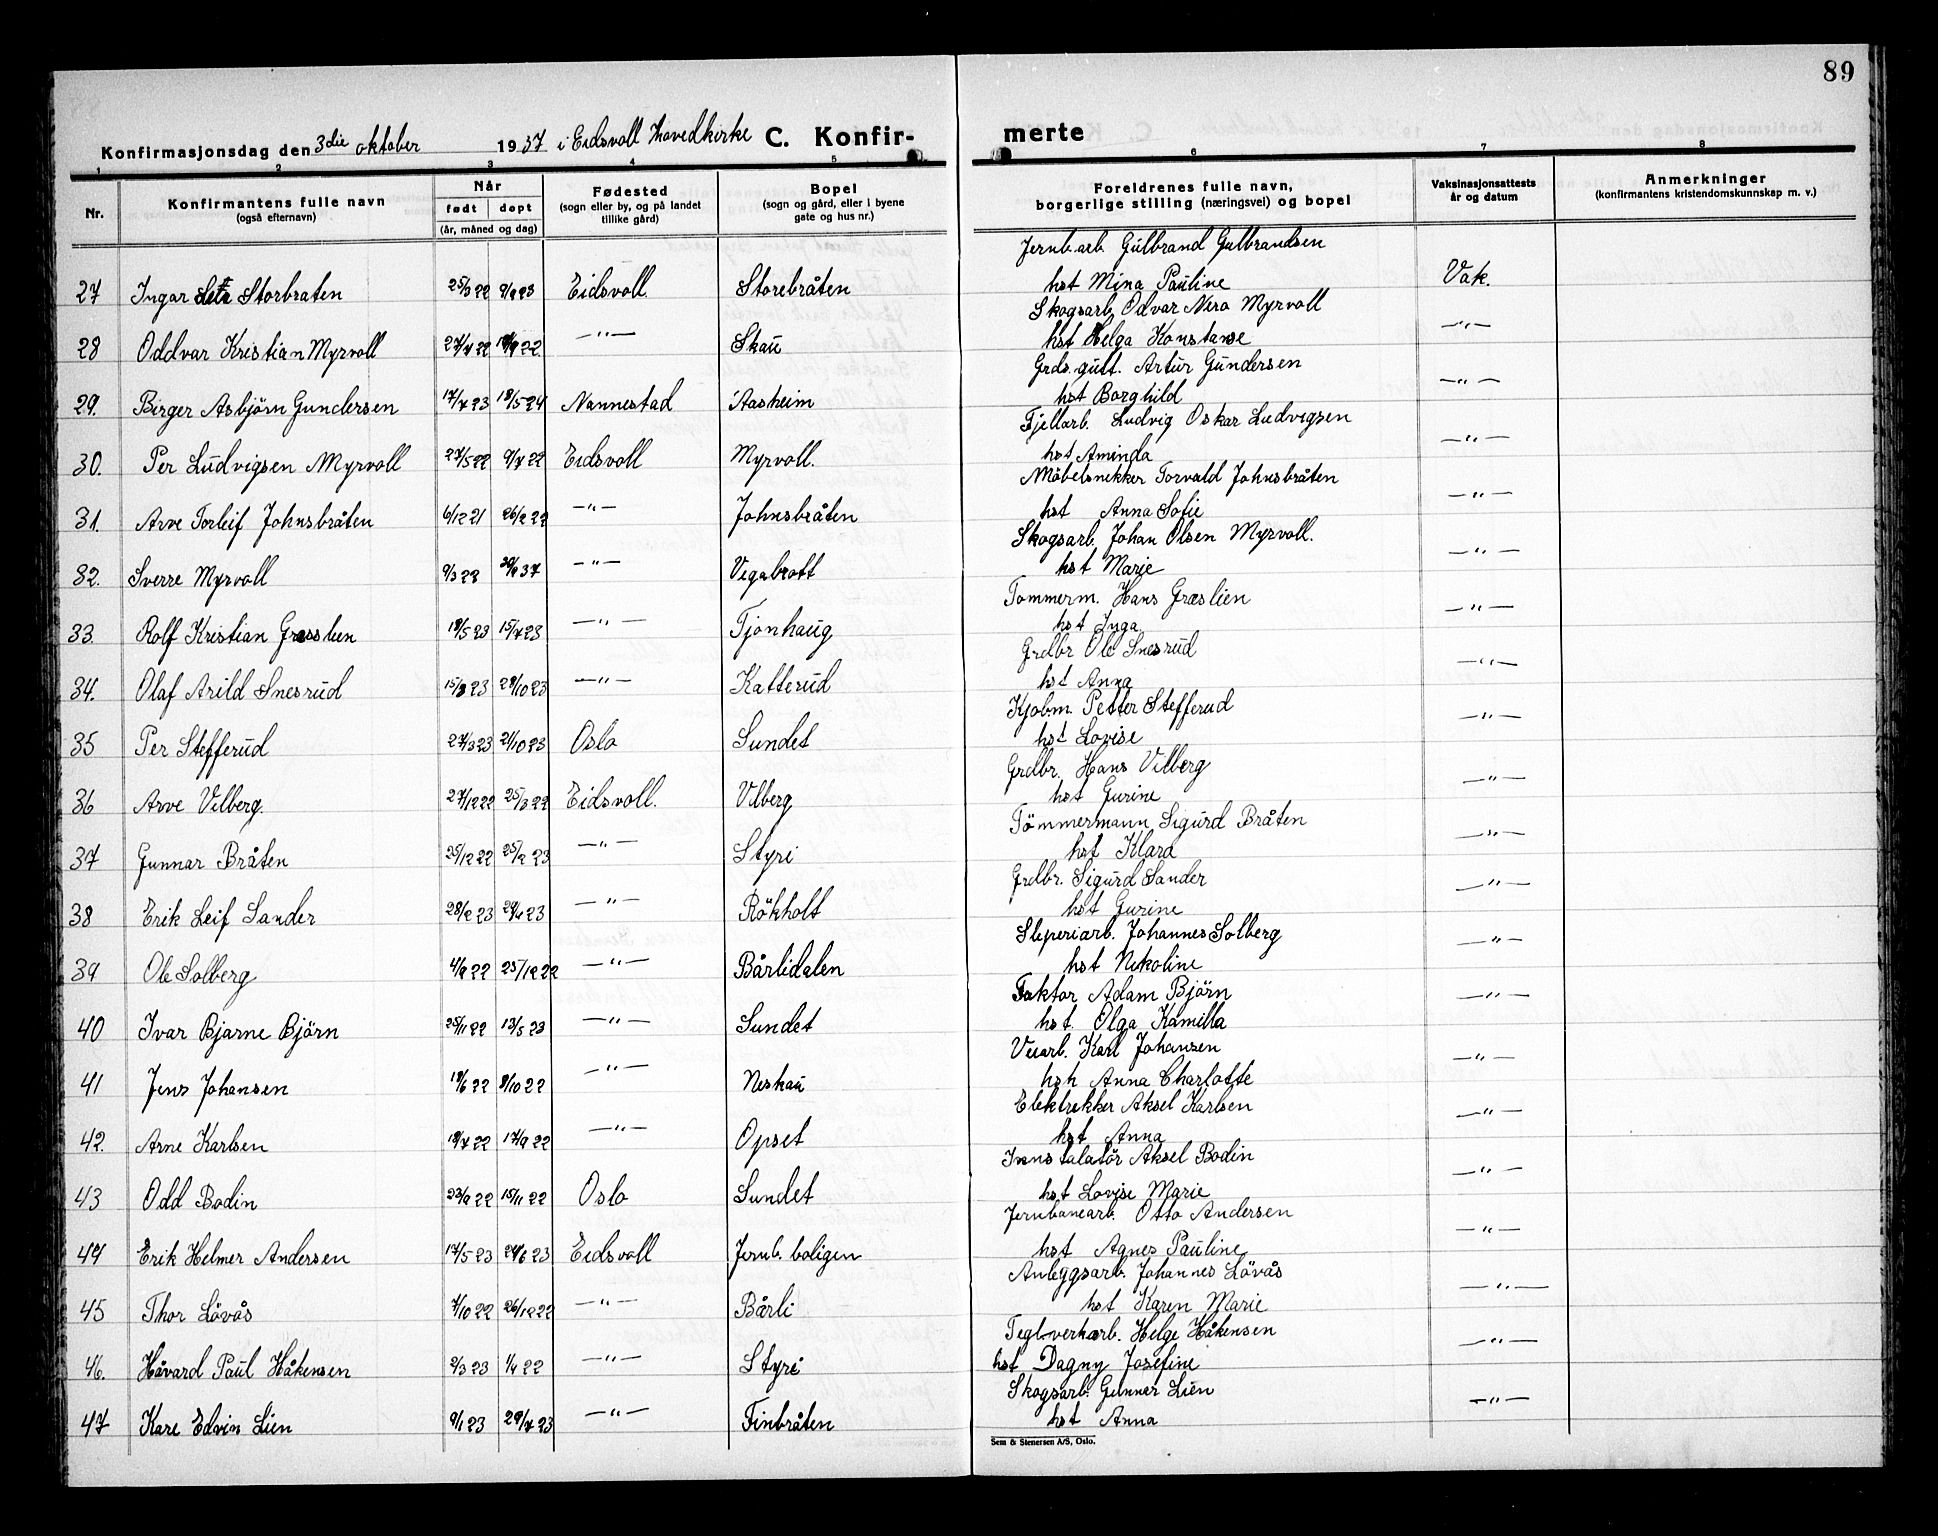 89
Konfirmasjonsdag den 3die oktober 1937 i Eidsvoll Hovedkirke C. Konfir- merte
1 2 3 4 5 6 7 8
Nr. Konfirmantens fulle navn (også efternavn) Når født døpt (år, måned og dag) Fødested (sogn eller by, og på landet tillike gård) Bopel (sogn og gård, eller i byene gate og hus nr.) Foreldrenes fulle navn, borgerlige stilling (næringsvei) og bopel Vaksinasjonsattests år og datum Anmerkninger (konfirmantens kristendomskunnskap m. v.)
Jernb.arb. Gulbrand Gulbrandsen
27 Ingar Storbraten 25/3 22 9/9 23 Eidsvoll. Storebråten hst Mina Pauline Vak.
Skogsarb. Odvar Nero Myrvoll
28 Oddvar Kristian Myrvoll 27/4 22 22 —"— Skau hst Helga Konstanse —"—
Grds.gutt. Artur Gundersen
29. Birger Asbjørn Gundersen 17/4 23 18/5 24 Nannestad Aasheim hst Borghild —"—
Fjellarb. Ludvig Oskar Ludvigsen
30. Per Ludvigsen Myrvoll 27/5 22 9/7 22 Eidsvoll Myrvoll. hst Aminda —"—
Möbelsnekker Torvald Johnsbråten
31. Arve Torleif Johnsbråten 6/12 21 26/2 22 —"— Johnsbråten hst Anna Sofie —"—
Skogsarb. Johan Olsen Myrvoll.
32. Sverre Myrvoll 9/3 22 37 —"— Vegabrott hst Marie —"—
Tommerm. Hans Græslien
33. Rolf Kristian Grasslien 18/5 23 15/7 23 —"— Tjonhaug hst Inga —"—
Grdbr Ole Snesrud
34. Olaf Arild Snesrud 15/8 23 28/10 23 —"— Katterud hst Anna —"—
Kjobm. Petter Stefferud
35 Per Stefferud 27/3 23 21/10 23 Oslo Sundet hst Lovise —"—
Grdbr. Hans Vilberg
36 Arve Vilberg. 27/12 22 25/3 22 Eidsvoll. Vilberg hst Gurine —"—
Tömmermann Sigurd Bråten
37 Gunnar Bråten 25/12 22 25/2 23 —"— Styri hst Klara —"—
Grdbr. Sigurd Sander
38 Erik Leif Sander 28/2 23 29/4 23 —"— Rökholt hst Gurine —"—
Sliperiarb. Johannes Solberg
39 Ole Solberg 4/9 22 25/12 22 —"— Bårlidalen hst Nikoline —"—
Faktor Adam Björn
40 Ivar Bjarne Björn 25/11 22 13/5 23 —"— Sundet hst. Olga Kamilla —"—
Veiarb. Karl Johansen
41 Jens Johansen 18/6 22 8/10 22 —"— Neskau hsh Anna Charlotte —"—
Elektrikker Aksel Karlsen
42. Arne Karlsen 18/7 22 17/9 22 —"— Opset hst Anna —"—
Innstalatör Aksel Bodin
43 Odd Bodin 23/9 22 15/11 22 Oslo Sundet hst Lovise Marie —"—
Jernbanearb. Otto Andersen
44 Erik Helmer Andersen 17/5 23 24/6 23 Eidsvoll Jernb. boligen hst Agnes Pauline —"—
Anleggsarb. Johannes Lövås
45 Thor Lövås 7/10 22 26/12 22 —"— Bårli hst Karen Marie —"—
Teglverkarb. Helge Håkensen
46. Håvard Paul Håkensen 2/3 23 1/4 22 —"— Styri hst Dagny Josefine —"—
Skogsarb. Gunnar Lien
47 Kare Edvin Lien 9/1 23 29/7 23 —"— Finbråten hst Anna —"—
Sem & Stenersen A/S, Oslo.